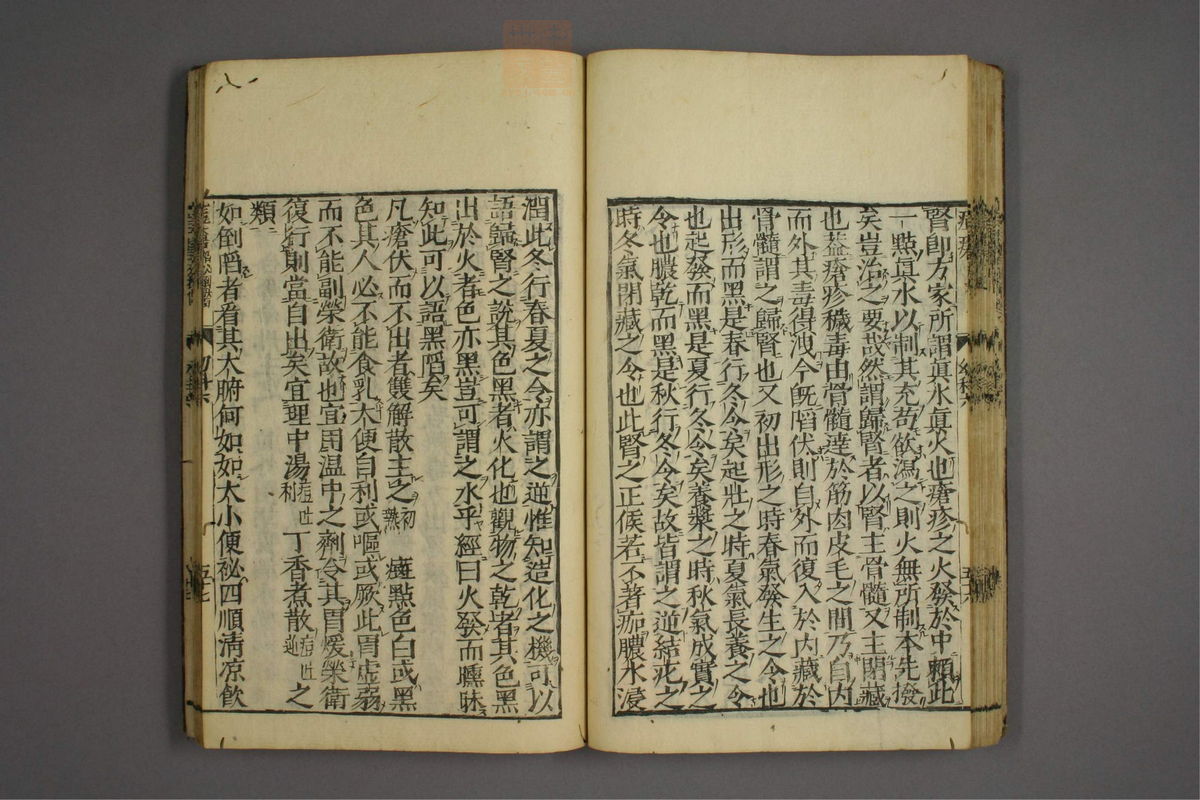 腎卽方家所謂眞水眞火也瘡疹之火發於中頼此
一㸃眞水以制其充苟欲瀉之則火無所制本先撥
矣豈治之要哉然謂歸腎者以腎主骨髓又主閉藏
也葢瘡疹穢毒由骨髓達於筋肉皮毛之間乃自内
而外其毒得洩今旣陷伏則自外而復入於内藏於
骨髓謂之歸腎也又初出形之時春氣發生之令也
出形而黑是春行冬令矣起壯之時夏氣長養之令
也起發而黑是夏行冬令矣養漿之時秋氣成實之
令也膿乾而黑是秋行冬令矣故皆謂之逆結疕之
時冬氣閉藏之令也此腎之正候若不著痂膿水浸
潤此冬行春夏之令亦謂之逆惟知造化之機可以
語歸腎之說其色黑者火化也觀物之乾者其色黑
出於火者色亦黑豈可謂之水乎經曰火發而曛昧
知此可以語黑陷矣
凡瘡伏而不出者雙解散主之初熱 斑㸃色白或黑
色其人必不能食乳大便自利或嘔或厥此胃虛弱
而不能副榮衛故也宜用温中之劑令其胃煖榮衛
復行則當自出矣宜理中湯痘吐利 丁香煮散痘吐逆 之
類
如倒陷者看其大腑何如如大小便秘四順淸凉飲